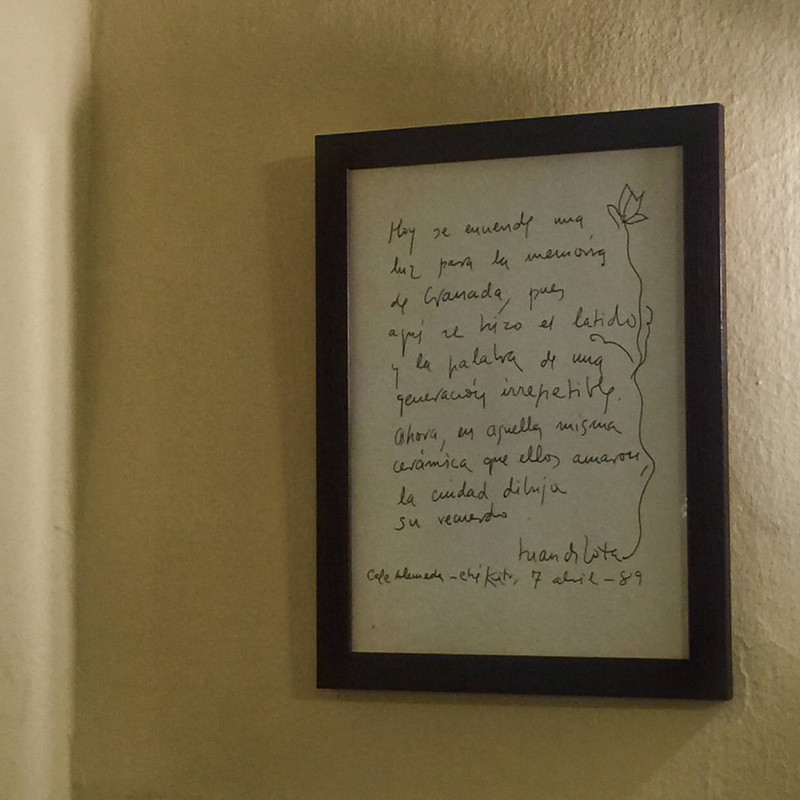 Hoy se enciende una
luz para la memoria
de Granada, pues
aquí se hizo el latido
y la palabra de una
generación irrepetible.
Ahora, en aquella misma
cerámica que ellos amaron,
la ciudad dibuja
su recuerdo
Juan de Loxa
Café Alameda - Chikito, 7 abril - 89